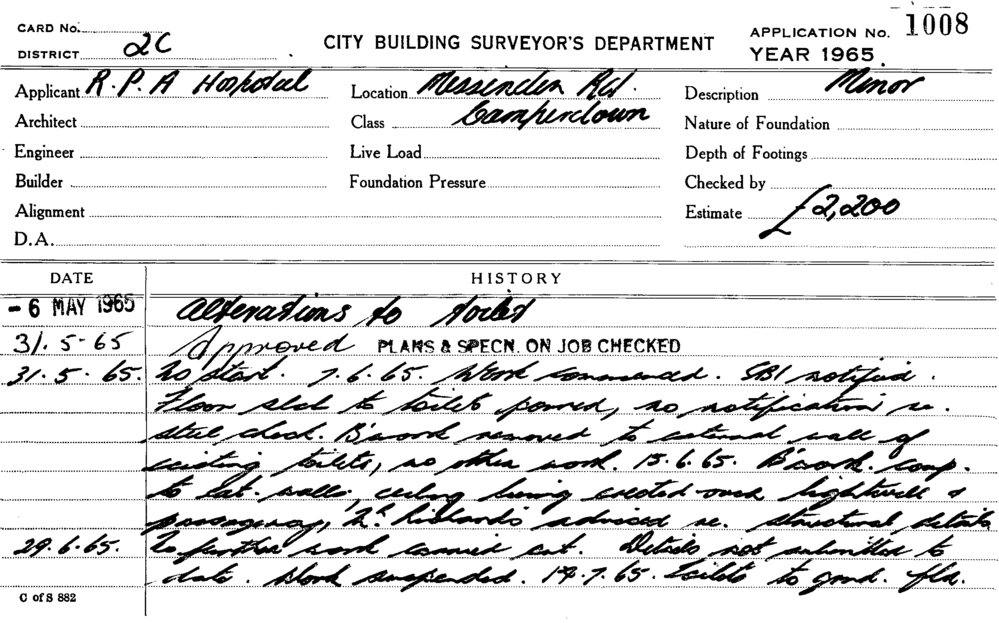 CARD No.
DISTRICT 2C
CITY BUILDING SURVEYOR'S DEPARTMENT
APPLICATION No. 1008
YEAR 1965.
Applicant R.P.A Hospital
Location Messenden Rd.
Description Minor
Architect
Class Camperdown
Nature of Foundation
Engineer
Live Load
Depth of Footings
Builder
Foundation Pressure
Checked by
Alignment
Estimate £2,200
D.A.
DATE
HISTORY
- 6 MAY 1965 Alterations to toilet
31.5-65 Approved PLANS & SPECN. ON JOB CHECKED
31.5.65. No start. 7.6.65. Work commenced. SBI notified.
Floor slab to toilets poured, no notification re.
steel check. B'work removed to external wall of
existing toilets, no other work. 15.6.65. B'work. comp.
to ext. walls, ceiling being erected over lightwell &
passageway, Mr. Richards advised re. structural details
29.6.65. No further work carried out. Details not submitted to
date. Work suspended. 14.7.65. toilets to grnd. flr.
C of S 882